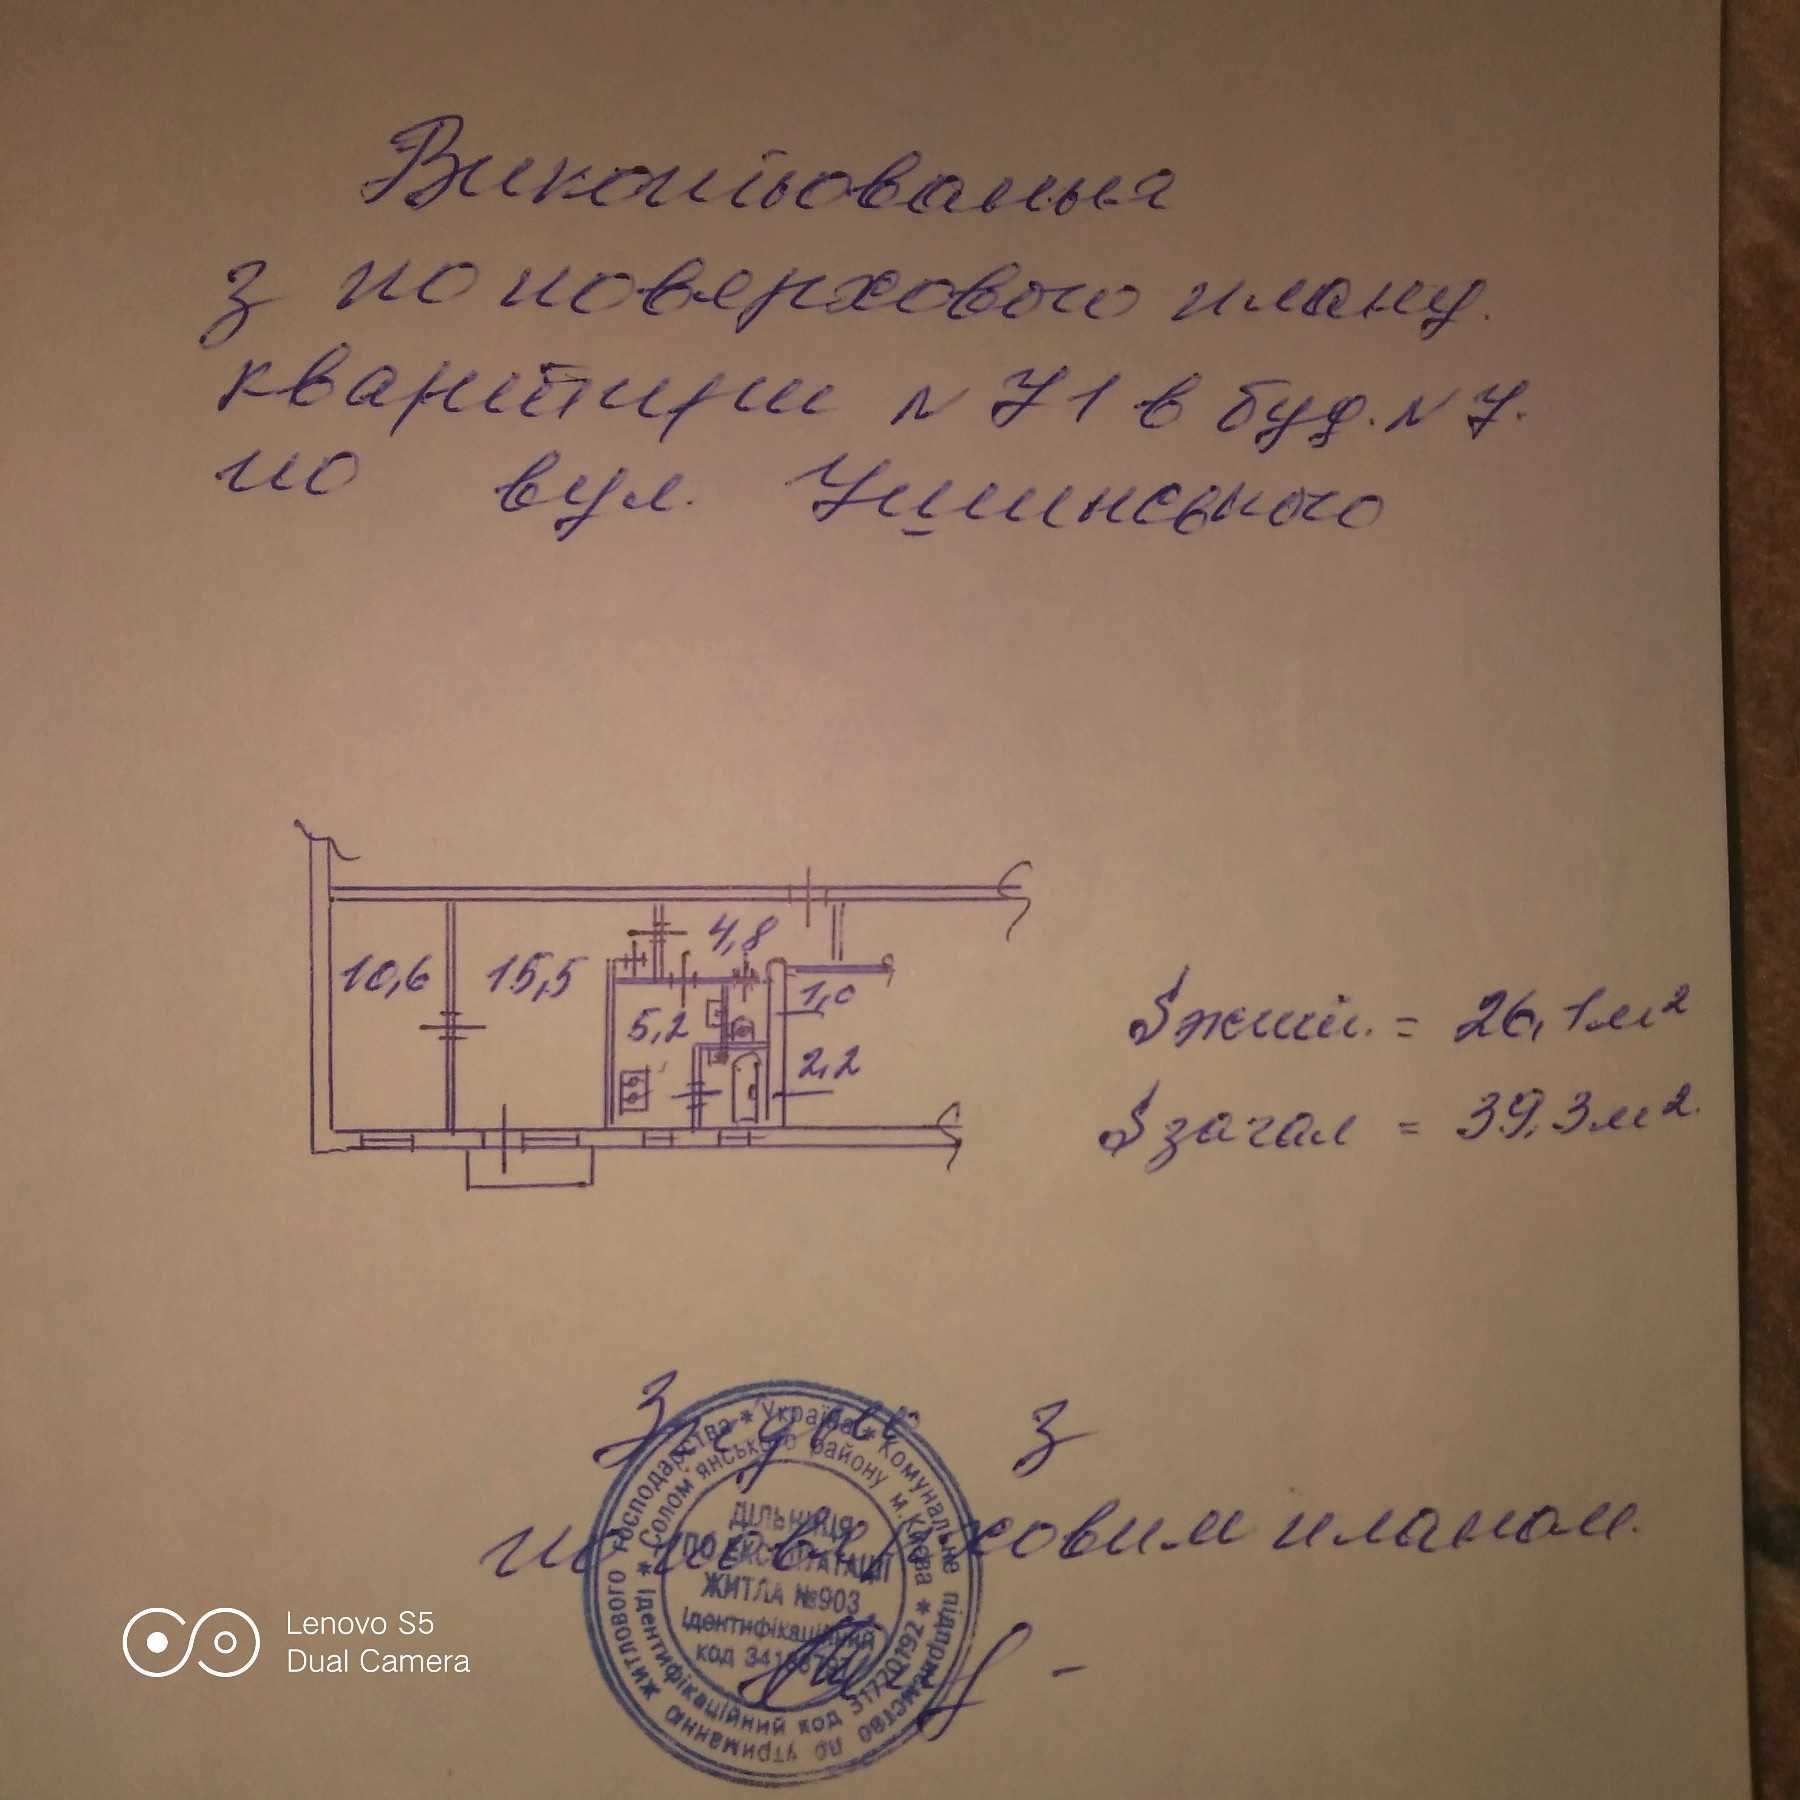 Викопіювання
з по поверхового плану.
квартири № 71 в буд. № 7.
по вул. Ушинського
4,8
10,6 15,5
1,0
5,2
2,2
Sжит. = 26,1 м²
Sзагал = 39,3 м²
Згідно з
поповерховим планом.
* Україна * Комунальне підприємство по утриманню житлового господарства
* Солом'янського району м. Києва * Ідентифікаційний код 31720192
ДІЛЬНИЦЯ
ПО ЕКСПЛУАТАЦІЇ
ЖИТЛА №903
Ідентифікаційний
код
Lenovo S5
Dual Camera